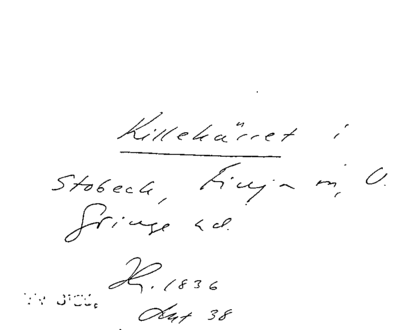 Killekärret i
Stobeck, Finja m, V.
Göinge hd.
1836
Akt 38